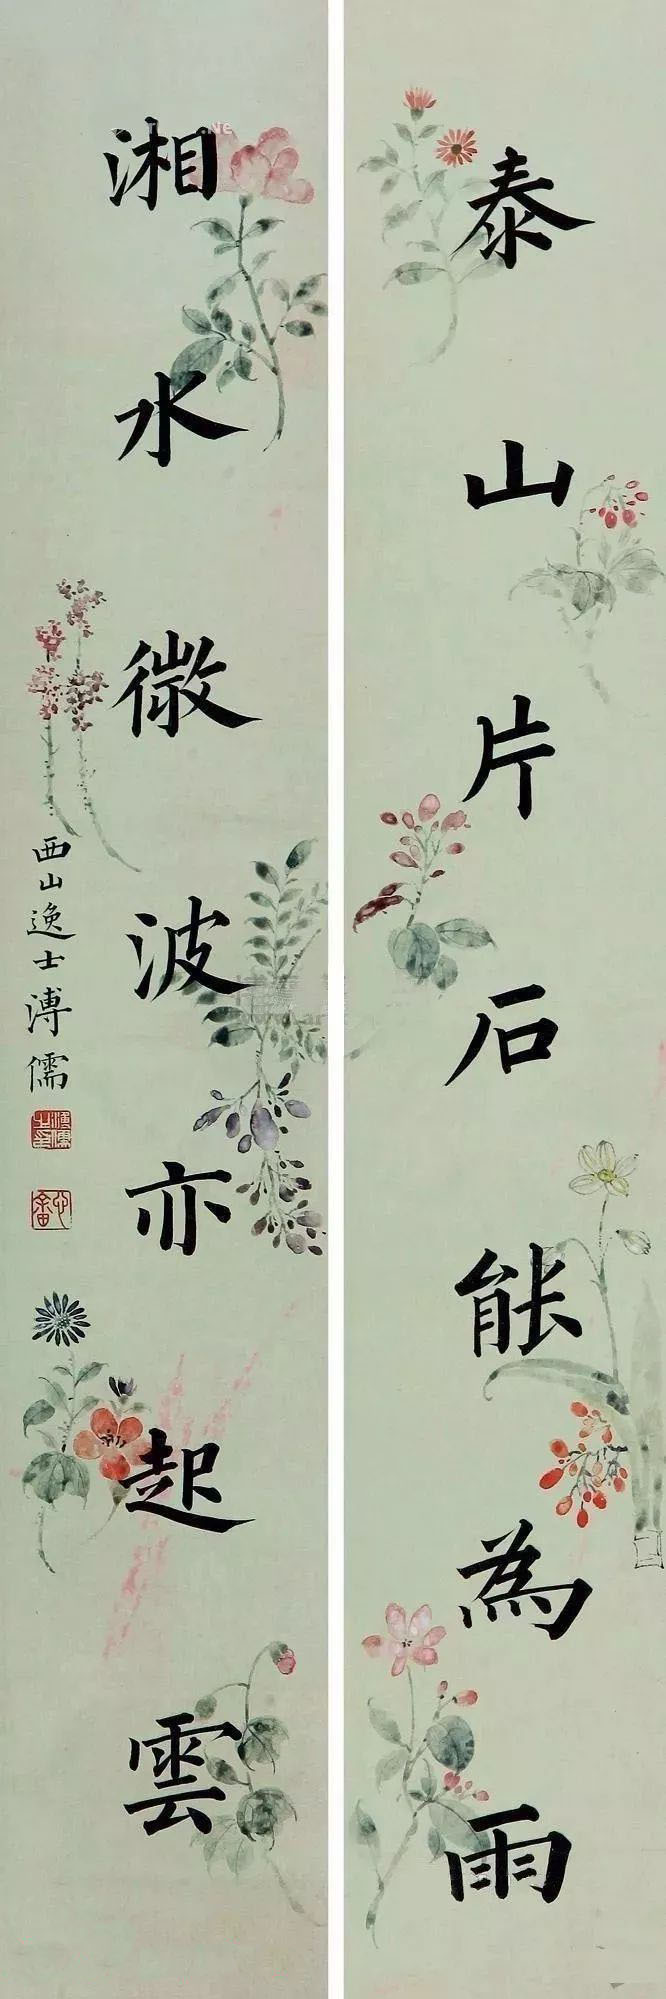 泰山片石能為雨
湘水微波亦起雲
西山逸士溥儒